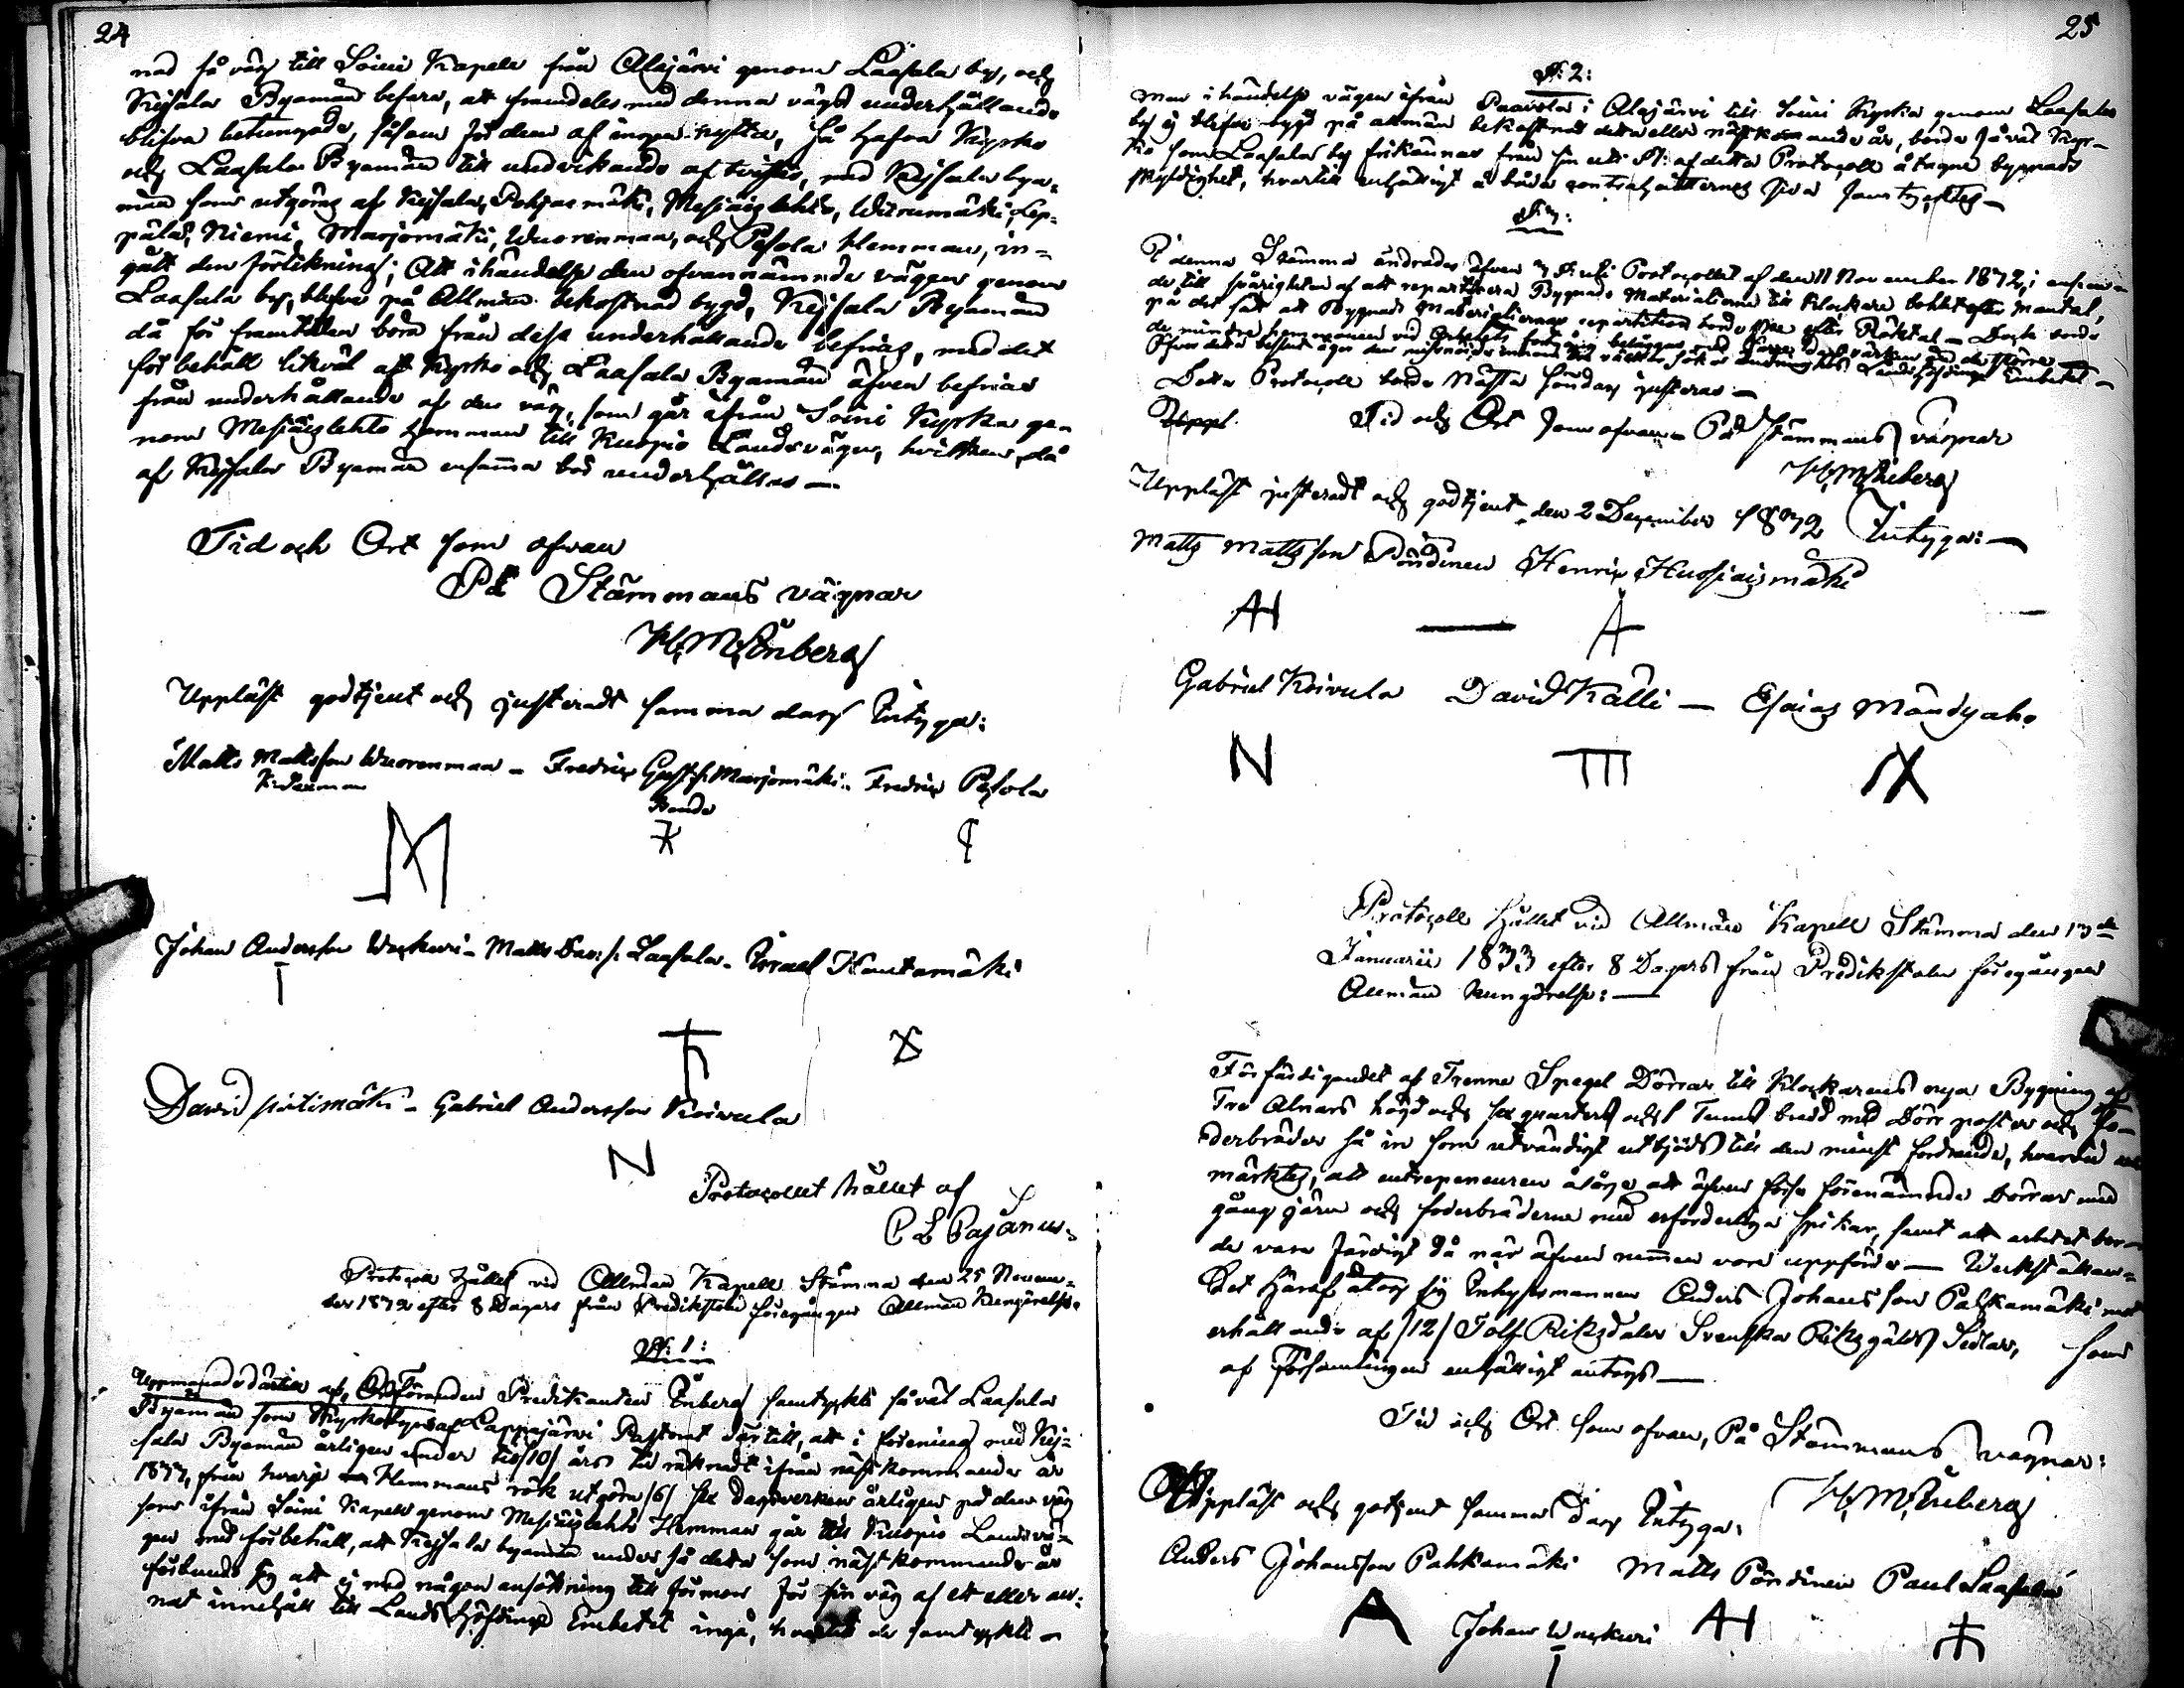 24
nad få väg till Soini Kapell från Alajärvi genom Laasala by, och
Keisala Byamän befara, att framdeles med denna vägs underhållande
blifva betungade, såsom för dem af ingen nytta, Så hafva Kyrko
och Laasala Byamän till undvikande af tvister, med Keisala bya-
män som utgöres af Keisala, Pohjasmäki, Mesiäislehto, Wirnumäki, Lep-
pälä, Niemi, Marjomäki, Wuorenmaa, och Pesola Hemman, in-
gått den förlikning; Att ihändelse den ofvannämnde vägen genom
Laasala by, blefve på Allmän bekostnad bygd, Keisala Byamän
då för framtiden borde från dess underhållande befrias, med det
förbehåll likväl att Kyrko och Laasala Byamän äfven befrias
från underhållande af den väg, som går ifrån Soini Kyrka ge-
nom Mesiäislehto hemman till Kuopio Landsvägen, hvilken då
af Keisala Byamän ensamma bör underhållas —
Tid och Ort som ofvan
På Stämmans vägnar
H. M. Enberg
Uppläst godtjent och justeradt samma dag Intyga:
Matts Mattsson Wuorenmaa – Fredric Gust.s. Marjomäki – Fredric Pesola
Bonde
Johan Andersson Waskuri – Matts Dav:s. Laasala – Israel Hautamäki
David pirtimäki – Gabriel Andersson Koivula
N
Protocollet hållet af
C L Pajanus
Protocoll hållet vid Allmän Kapell Stämma den 25 Novem-
ber 1832 efter 8 Dagars från Predikstolen föregången Allmän Kungörelse.
§: 1:
Uppmanade därtill af Ordföranden Predikanten Enberg samtyckte så väl Laasala
Byamän som Kyrkobyns af Lappajärvi Pastorat därtill, att i förening med Kej-
sala Byamän årligen under tio /10/ års tid räknadt ifrån nästkommande år
1833, från hvarje Hemmans rök utgöra /6/ sex dagsverken årligen på den väg
som ifrån Soini Kapell genom Mesiäislehto Hemman går till Kuopio Landsvä-
gen med förbehåll, att Keisala byamän under så detta som nästkommande år
förbundo sig att ej med någon ansökning till förmon för sin väg af ett eller an-
nat innehåll till Landshöfdinge Embetet ingå, hvartill de samtyckte –
25
§: 2:
Men i händelse vägen ifrån Paavola i Alajärvi till Soini Kyrka genom Laasala
by ej blifver bygd på allmän bekostnad detta eller nästkommande år, borde så väl Kyr-
ko som Laasala by frikännas från sin uti §1: af detta Protocoll åtagne byggnads
skyldighet, hvartill enhälligt å båda contrahenternes sida samtycktes —
§: 3:
På denna Stämma ändrades äfven Protocollet af den 11 November 1832, i anseen-
de till svårigheten af att repartitera Bygnads Materialierne till Klockare bohlet efter Mantal,
på det sätt att Bygnads Materialiernas repartition borde ske efter Röktal –
Detta Protocoll borde nästa Söndag justeras —
Tid och Ort som ofvan – På Stämmans vägnar
H. M. Enberg
Uppläst justeradt och godtjent, den 2 December 1832 Intyga: —
Matts Mattsson Pöndinen Henric Huosiaismäki
AH A
Gabriel Koivula David Källi — Esaias Mändyaho
N
Protocoll hållet vid Allmän Kapell Stämma den 13de
Januarii 1833 efter 8 Dagars från Predikstolen föregången
Allmän kungörelse: —
Förfärdigandet af Trenne Spegel Dörrar till Klockarens nya Bygning af
Tre Alnars högd och sex quarters och 1 Tums bredd med Dörr poster och fo-
derbräder så in som utvändigt utbjöds till den minst fordrande, hvarvid an-
märktes, att entrepeneuren ålåge att äfven förse förenämnde Dörrar med
gångjärn och foderbräderne med erforderliga spikar, samt att arbetet bor-
de vara färdigt då när äfven rummen vore uppförde — Werkställan-
det häraf åtog sig Inhysesmannen Anders Johansson Pahkamäki mot
erhållande af /12/ Tolf Riksdaler Svenska Riksgälds Sedlar, som
af Församlingen enhälligt antogs —
Tid och Ort som ofvan, På Stämmans vägnar:
H. M. Enberg
Uppläst och gotjent samma dag Intyga:
Anders Johansson Pahkamäki Matts Pöndinen Paul Laasala
A Johan Waskuri AH